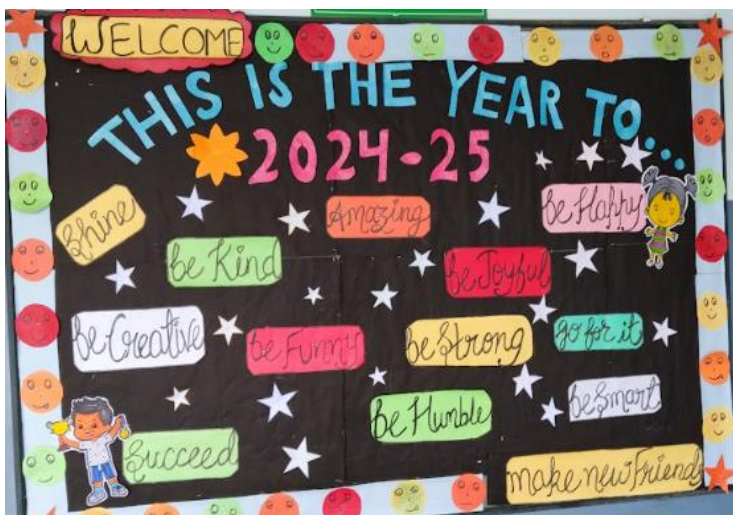 WELCOME
THIS IS THE YEAR TO...
2024-25
Shine
Amazing
be Happy
be Kind
be Joyful
be Creative
be Funny
be Strong
go for it
be Humble
be Smart
Succeed
make new Friends